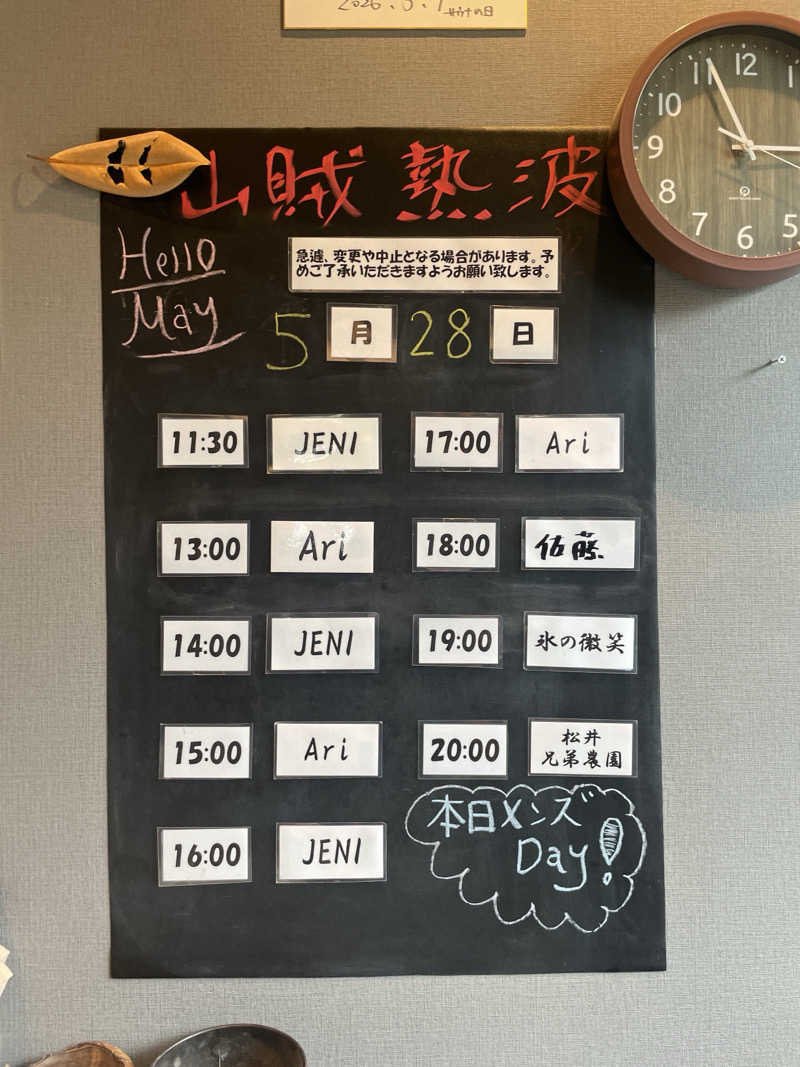 サウナの日
山賊熱波
Hello
May
急遽、変更や中止となる場合があります。予
めご了承いただきますようお願い致します。
5月28日
11:30 JENI
13:00 Ari
14:00 JENI
15:00 Ari
16:00 JENI
17:00 Ari
18:00 佐藤
19:00 氷の微笑
20:00 松井
兄弟農園
本日メンズ
Day!
11 12 1
10
9
8
7 6 5